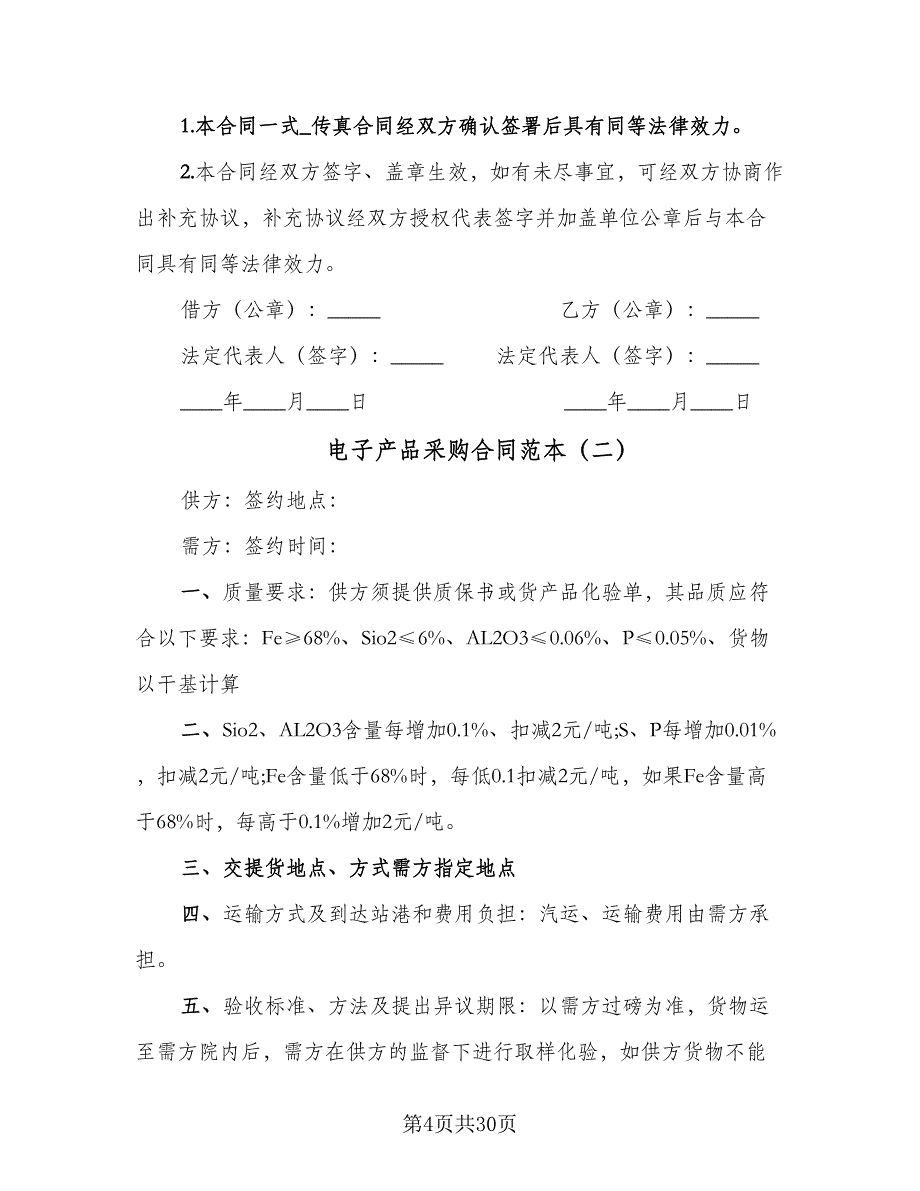 1.本合同一式_传真合同经双方确认签署后具有同等法律效力。
2.本合同经双方签字、盖章生效，如有未尽事宜，可经双方协商作
出补充协议，补充协议经双方授权代表签字并加盖单位公章后与本合
同具有同等法律效力。
借方（公章）：_____ 乙方（公章）：_____
法定代表人（签字）：_____ 法定代表人（签字）：_____
____年____月____日 ____年____月____日
电子产品采购合同范本（二）
供方：签约地点：
需方：签约时间：
一、质量要求：供方须提供质保书或货产品化验单，其品质应符
合以下要求：Fe≥68%、Sio2≤6%、AL2O3≤0.06%、P≤0.05%、货物
以干基计算
二、Sio2、AL2O3含量每增加0.1%、扣减2元/吨;S、P每增加0.01%
，扣减2元/吨;Fe含量低于68%时，每低0.1扣减2元/吨，如果Fe含量高
于68%时，每高于0.1%增加2元/吨。
三、交提货地点、方式需方指定地点
四、运输方式及到达站港和费用负担：汽运、运输费用由需方承
担。
五、验收标准、方法及提出异议期限：以需方过磅为准，货物运
至需方院内后，需方在供方的监督下进行取样化验，如供方货物不能
第4页共30页